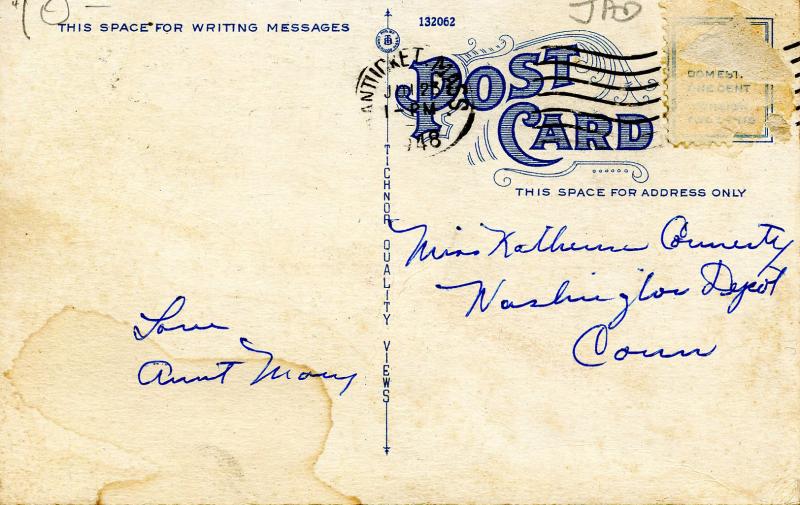 THIS SPACE FOR WRITING MESSAGES
132062
POST
CARD
NANTUCKET MASS
1-PM
1948
DOMESTIC
ONE CENT
THIS SPACE FOR ADDRESS ONLY
TICHNOR QUALITY VIEWS
Miss Katherine Connerty
Washington Depot
Conn
Love
Aunt Mary